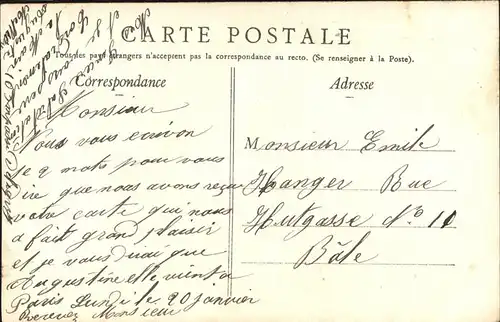 CARTE POSTALE
Tous les pays étrangers n'acceptent pas la correspondance au recto. (Se renseigner à la Poste).
Correspondance
Adresse
Monsieur
Nous vous écrivon
se 2 mots pour vous
dire que nous avons reçu
votre carte qui nous
a fait grand plaisir
et je vous dirai que
Augustine elle vient a
Paris Lundi le 20 janvier
Recevez Monsieur
Monsieur Emile
Hanger Rue
Hutgasse No 10
Bâle